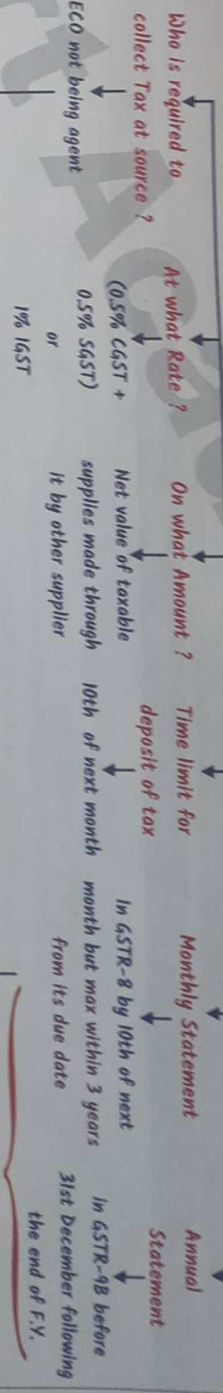 Who is required to
collect Tax at source ?
ECO not being agent
At what Rate ?
(0.5% CGST +
0.5% SGST)
or
1% IGST
On what Amount ?
Net value of taxable
supplies made through
it by other supplier
Time limit for
deposit of tax
10th of next month
Monthly Statement
In GSTR-8 by 10th of next
month but max within 3 years
from its due date
Annual
Statement
in GSTR-9B before
31st December following
the end of F.Y.